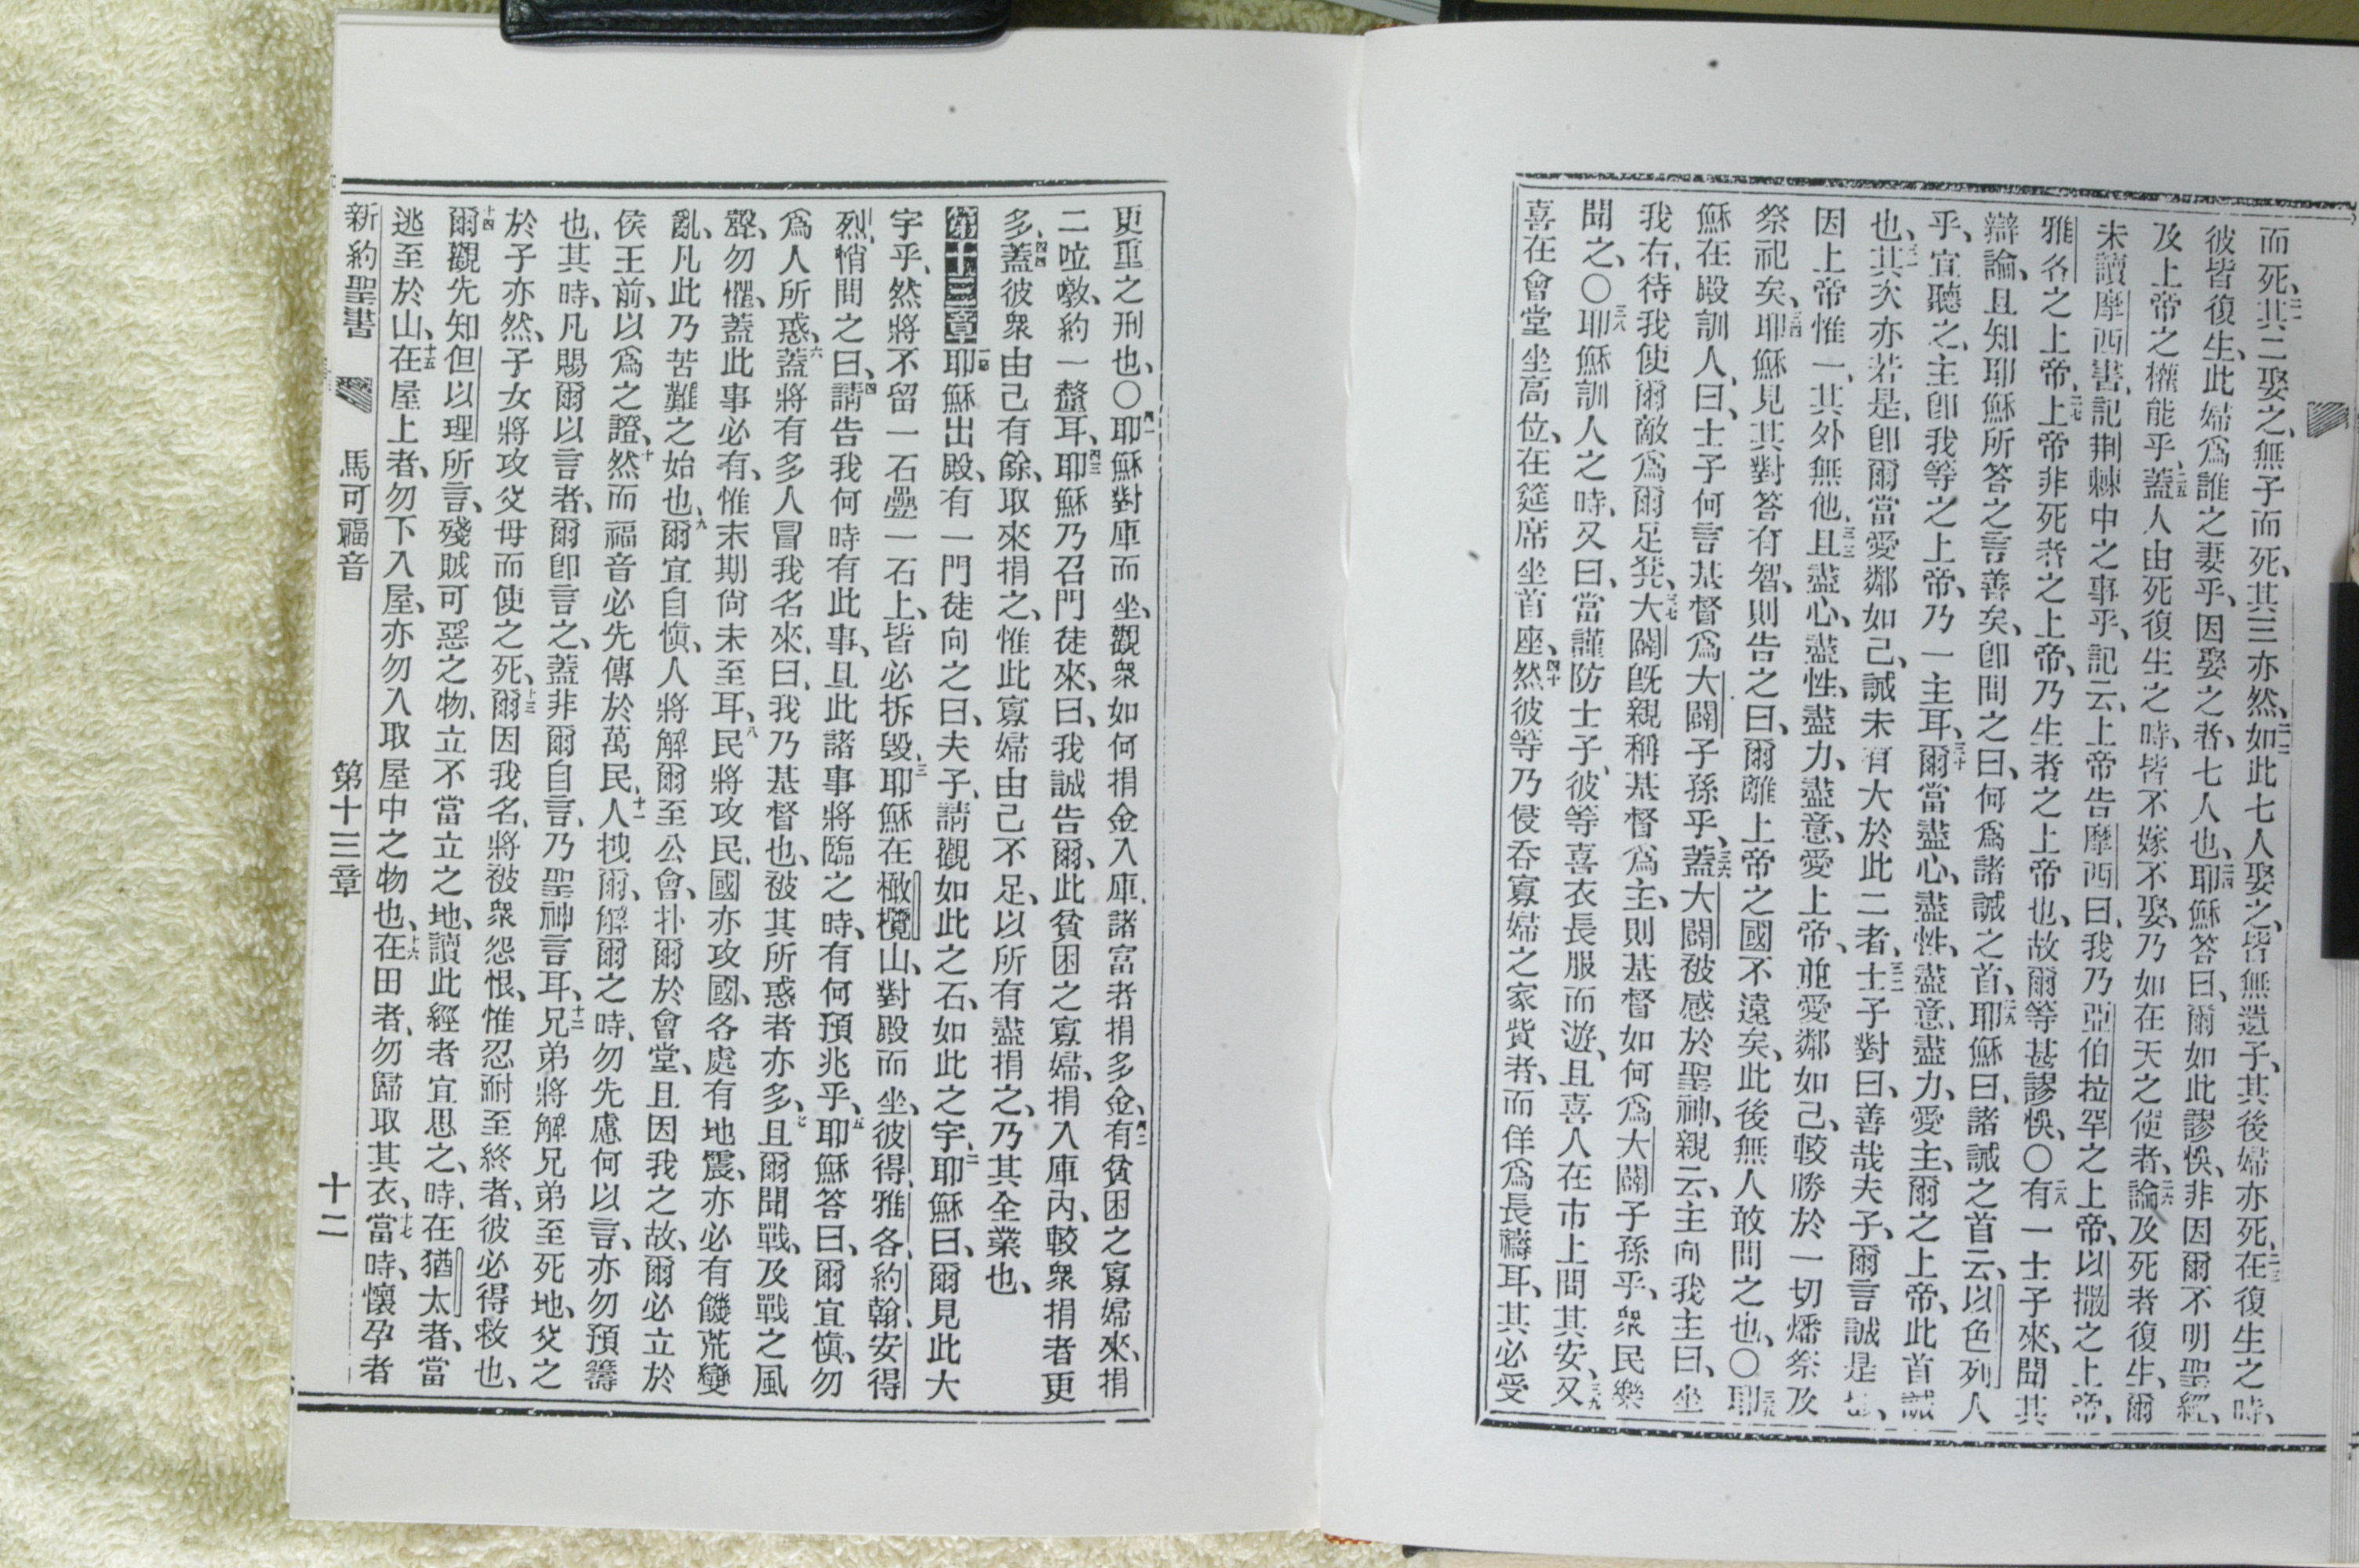 而死、二一其二娶之、無子而死、其三亦然、二二如此七人娶之、皆無遺子、其後婦亦死、二三在復生之時、
彼皆復生、此婦爲誰之妻乎、因娶之者、七人也、二四耶穌答曰、爾如此謬悞、非因爾不明聖經、
及上帝之權能乎、二五蓋人由死復生之時、皆不嫁不娶、乃如在天之使者、二六論及死者復生、爾
未讀摩西書、記荆棘中之事乎、記云、上帝告摩西曰、我乃亞伯拉罕之上帝、以撒之上帝、
雅各之上帝、二七上帝非死者之上帝、乃生者之上帝也、故爾等甚謬悞、〇二八有一士子來、聞其
辯論、且知耶穌所答之言善矣、卽問之曰、何爲諸誡之首、二九耶穌曰、諸誡之首云、以色列人
乎、宜聽之、主卽我等之上帝、乃一主耳、三十爾當盡心、盡性、盡意、盡力、愛主、爾之上帝、此首誡
也、三一其次亦若是、卽爾當愛鄰如己、誡未有大於此二者、三二士子對曰、善哉夫子、爾言誠是也、
因上帝惟一、其外無他、三三且盡心、盡性、盡力、盡意、愛上帝、並愛鄰如己、較勝於一切燔祭及
祭祀矣、三四耶穌見其對答有智、則告之曰、爾離上帝之國不遠矣、此後無人敢問之也、〇三五耶
穌在殿訓人、曰、士子何言基督爲大闢子孫乎、三六蓋大闢被感於聖神、親云、主向我主曰、坐
我右、待我使爾敵爲爾足凳、三七大闢旣親稱基督爲主、則基督如何爲大闢子孫乎、衆民樂
聞之、〇三八耶穌訓人之時、又曰、當謹防士子、彼等喜衣長服而遊、且喜人在市上問其安、三九又
喜在會堂坐高位、在筵席坐首座、四十然彼等乃侵呑寡婦之家貲者、而佯爲長禱耳、其必受
更重之刑也、〇四一耶穌對庫而坐、觀衆如何捐金入庫、諸富者捐多金、四二有貧困之寡婦來、捐
二呅噋、約一釐耳、四三耶穌乃召門徒來、曰、我誠告爾、此貧困之寡婦、捐入庫內、較衆捐者更
多、四四蓋彼衆由己有餘、取來捐之、惟此寡婦由己不足、以所有盡捐之、乃其全業也、
第十三章 一耶穌出殿、有一門徒向之曰、夫子、請觀如此之石、如此之宇、二耶穌曰、爾見此大
宇乎、然將不留一石疊一石上、皆必拆毀、三耶穌在橄欖山、對殿而坐、彼得、雅各、約翰、安得
烈、悄問之曰、四請告我何時有此事、且此諸事將臨之時、有何預兆乎、五耶穌答曰、爾宜愼、勿
爲人所惑、六蓋將有多人冒我名來、曰、我乃基督也、被其所惑者亦多、七且爾聞戰、及戰之風
聲、勿懼、蓋此事必有、惟末期尙未至耳、八民將攻民、國亦攻國、各處有地震、亦必有饑荒變
亂、凡此乃苦難之始也、九爾宜自愼、人將解爾至公會、扑爾於會堂、且因我之故、爾必立於
侯王前、以爲之證、十然而福音必先傳於萬民、十一人拽爾、解爾之時、勿先慮何以言、亦勿預籌
也、其時、凡賜爾以言者、爾卽言之、蓋非爾自言、乃聖神言耳、十二兄弟將解兄弟至死地、父之
於子亦然、子女將攻父母而使之死、十三爾因我名、將被衆怨恨、惟忍耐至終者、彼必得救也、
十四爾觀先知但以理所言、殘賊可惡之物、立不當立之地、讀此經者宜思之、時、在猶太者、當
逃至於山、十五在屋上者、勿下入屋、亦勿入取屋中之物也、十六在田者、勿歸取其衣、十七當時、懷孕者
新約聖書 馬可福音 第十三章 十二